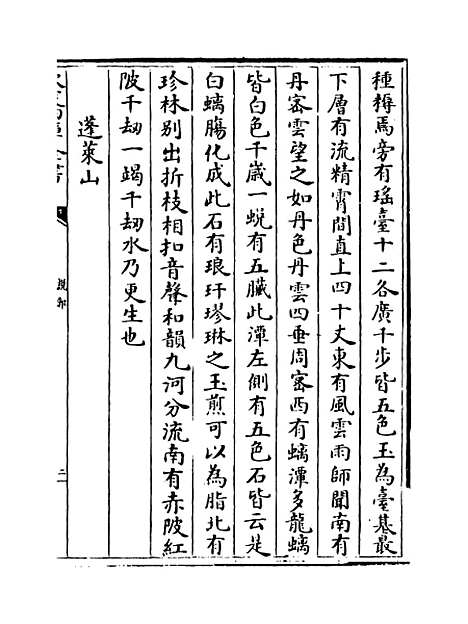 種耨焉旁有瑶臺十二各廣千步皆五色玉為臺基最
下層有流精霄間直上四十丈東有風雲雨師聞南有
丹宻雲望之如丹色丹雲四垂周宻西有螭潭多龍螭
皆白色千歲一蜕有五臟此潭左側有五色石皆云是
白螭膓化成此石有琅玕璆琳之玉煎可以為脂北有
珍林别出折枝相扣音聲和韻九河分流南有赤陂紅
陂千刼一竭千刼水乃更生也
蓬萊山
說郛
二